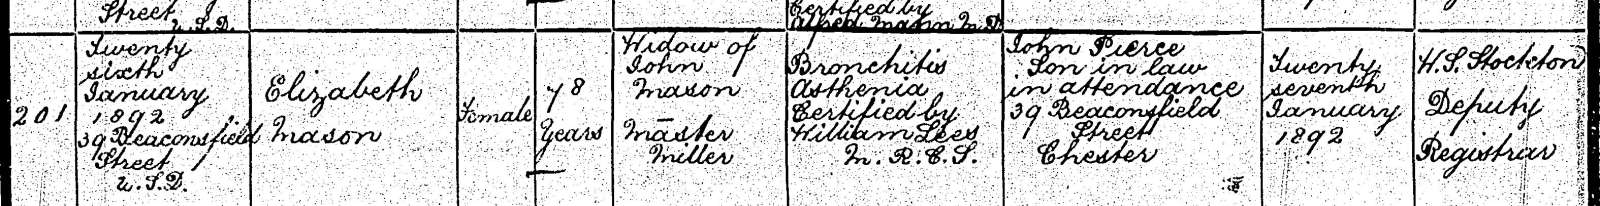 Street
U.S.D.
Certified by
Alfred Mann M.D.
201
Twenty
sixth
January
1892
39 Beaconsfield
Street
U.S.D.
Elizabeth
Mason
Female
78
Years
Widow of
John
Mason
—
Master
Miller
Bronchitis
Asthenia
Certified by
William Lees
M.R.C.S.
John Pierce
Son in law
in attendance
39 Beaconsfield
Street
Chester
Twenty
seventh
January
1892
H.S. Stockton
Deputy
Registrar